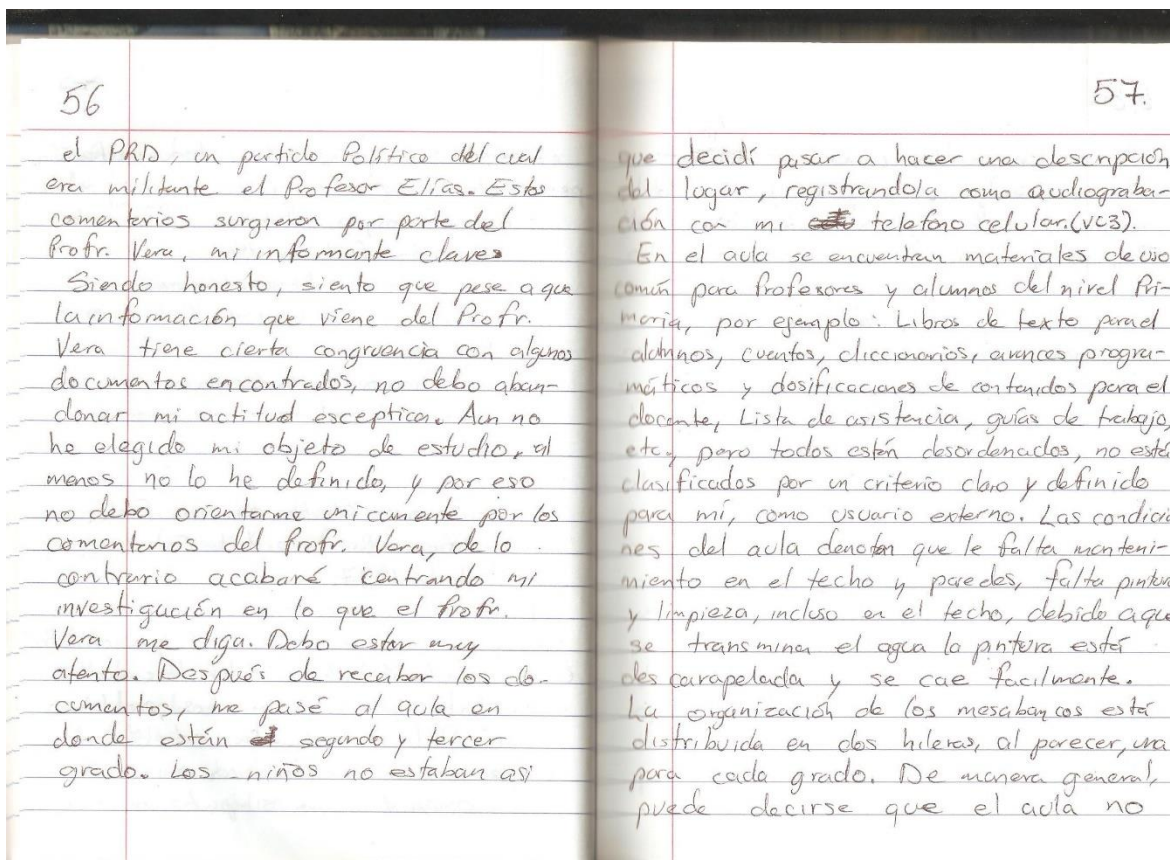 56
el PRD, un partido Político del cual
era militante el Profesor Elías. Estos
comentarios surgieron por parte del
Profr. Vera, mi informante claves
Siendo honesto, siento que pese a que
la información que viene del Profr.
Vera tiene cierta congruencia con algunos
documentos encontrados, no debo aban-
donar mi actitud esceptica. Aun no
he elegido mi objeto de estudio, al
menos no lo he definido, y por eso
no debo orientarme unicamente por los
comentarios del Profr. Vera, de lo
contrario acabaré centrando mi
investigación en lo que el Profr.
Vera me diga. Debo estar muy
atento. Después de recabar los do-
cumentos, me pasé al aula en
donde están segundo y tercer
grado. Los niños no estaban asi
57.
que decidí pasar a hacer una descripción
del lugar, registrandola como audiograba-
ción con mi telefono celular.(VC3).
En el aula se encuentran materiales de uso
común para Profesores y alumnos del nivel Pri-
maria, por ejemplo: Libros de texto para el
alumnos, cuentos, diccionarios, avances progra-
máticos y dosificaciones de contenidos para el
docente, Lista de asistencia, guías de trabajo,
etc, pero todos están desordenados, no está
clasificados por un criterio claro y definido
para mí, como usuario externo. Las condicio
nes del aula denotan que le falta manteni-
miento en el techo y paredes, falta pintura
y limpieza, incluso en el techo, debido a que
se transmina el agua la pintura está
descarapelada y se cae facilmente.
La organización de los mesabancos está
distribuida en dos hileras, al parecer, una
para cada grado. De manera general,
puede decirse que el aula no